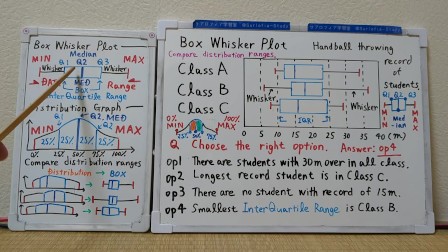 Box Whisker Plot
Median
MIN Q1 Q2 Q3 MAX
Whisker Whisker
MED
Range
Box
InterQuartile Range
Distribution Graph
MIN Q1 Q2, MED Q3 MAX
25% 25% 25% 25%
0% 25% 50% 75% 100%
Compare distribution ranges
Distribution → BOX
Box Whisker Plot Handball throwing
Compare distribution ranges,
Class A
Class B
Class C
record of students
Whisker Whisker
IQR
0 5 10 15 20 25 30 35 40 (m)
MIN MAX
0% 100%
Q1 Q2 Q3
MIN Med-ian MAX
Q Choose the right option. Answer: op4
op1 There are students with 30m over in all class.
op2 Longest record student is in Class C.
op3 There are no student with record of 15m.
op4 Smallest InterQuartile Range is Class B.